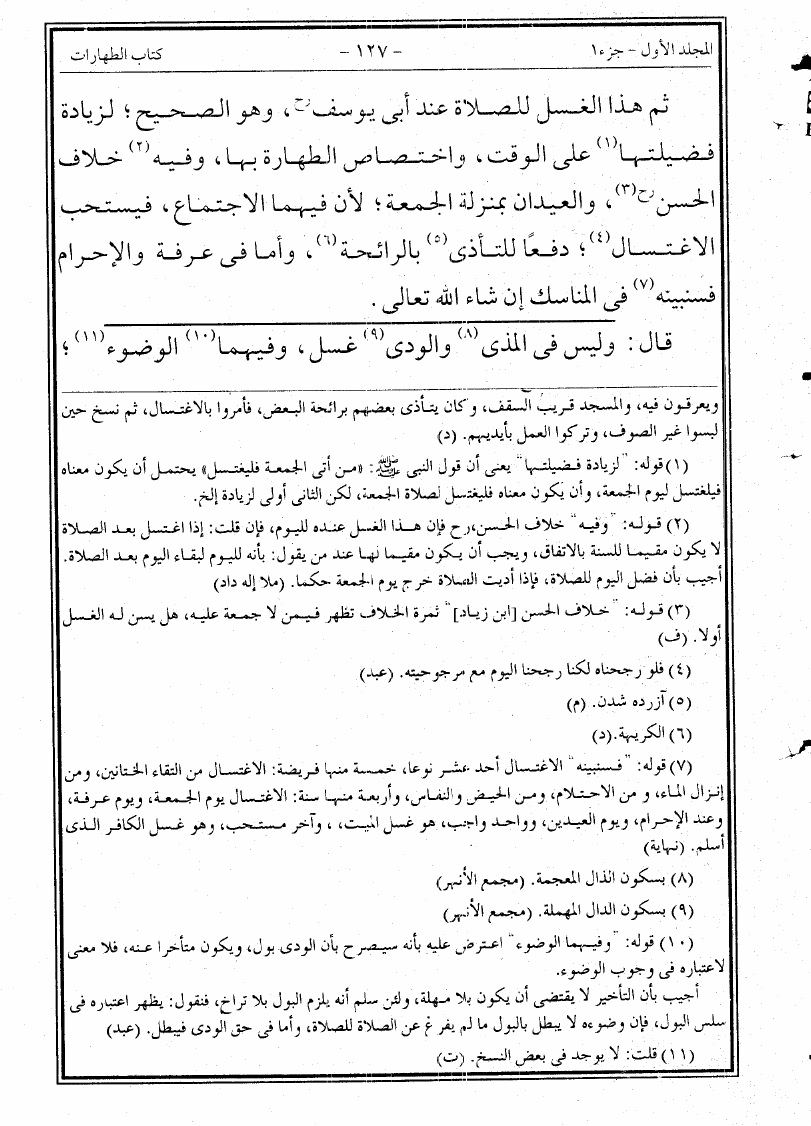 المجلد الأول - جزء١ - ١٢٧ - كتاب الطهارات
ثم هذا الغسل للصلاة عند أبى يوسف رح، وهو الصحيح؛ لزيادة
فضيلتها(١) على الوقت، واختصاص الطهارة بها، وفيه(٢) خلاف
الحسن رح(٣)، والعيدان بمنزلة الجمعة؛ لأن فيهما الاجتماع، فيستحب
الاغتسال(٤)؛ دفعًا للتأذى(٥) بالرائحة(٦)، وأما فى عرفة والإحرام
فسنبينه(٧) فى المناسك إن شاء الله تعالى.
قال: وليس فى المذى(٨) والودى(٩) غسل، وفيهما(١٠) الوضوء(١١)؛
ويعرقون فيه، والمسجد قريب السقف، وكان يتأذى بعضهم برائحة البعض، فأمروا بالاغتسال، ثم نسخ حين
لبسوا غير الصوف، وتركوا العمل بأيديهم. (د)
(١) قوله: "لزيادة فضيلتها" يعنى أن قول النبى ﷺ: «من أتى الجمعة فليغتسل» يحتمل أن يكون معناه
فيلغتسل ليوم الجمعة، وأن يكون معناه فليغتسل لصلاة الجمعة، لكن الثانى أولى لزيادة إلخ.
(٢) قوله: "وفيه" خلاف الحسن رح فإن هذا الغسل عنده لليوم، فإن قلت: إذا اغتسل بعد الصلاة
لا يكون مقيما للسنة بالاتفاق، ويجب أن يكون مقيما نها عند من يقول: بأنه لليوم لبقاء اليوم بعد الصلاة.
أجيب بأن فضل اليوم للصلاة، فإذا أديت الصلاة خرج يوم الجمعة حكما. (ملا إله داد)
(٣) قوله: "خلاف الحسن [ابن زياد]" ثمرة الخلاف تظهر فيمن لا جمعة عليه، هل يسن له الغسل
أولا. (ف)
(٤) فلو رجحناه لكنا رجحنا اليوم مع مرجوحيته. (عبد)
(٥) آزرده شدن. (م)
(٦) الكريهة. (د)
(٧) قوله: "فسنبينه" الاغتسال أحد عشر نوعا، خمسة منها فريضة: الاغتسال من التقاء الختانين، ومن
إنزال الماء، و من الاحتلام، ومن الحيض والنفاس، وأربعة منها سنة: الاغتسال يوم الجمعة، ويوم عرفة،
وعند الإحرام، ويوم العيدين، وواحد واجب، هو غسل الميت، ، وآخر مستحب، وهو غسل الكافر الذى
أسلم. (نهاية)
(٨) بسكون الذال المعجمة. (مجمع الأنهر)
(٩) بسكون الدال المهملة. (مجمع الأنهر)
(١٠) قوله: "وفيهما الوضوء" اعترض عليه بأنه سيصرح بأن الودى بول، ويكون متأخرا عنه، فلا معنى
لاعتباره فى وجوب الوضوء.
أجيب بأن التأخير لا يقتضى أن يكون بلا مهلة، ولئن سلم أنه يلزم البول بلا تراخ، فنقول: يظهر اعتباره فى
سلس البول، فإن وضوءه لا يبطل بالبول ما لم يفرغ عن الصلاة للصلاة، وأما فى حق الودى فيبطل. (عبد)
(١١) قلت: لا يوجد فى بعض النسخ. (ت)